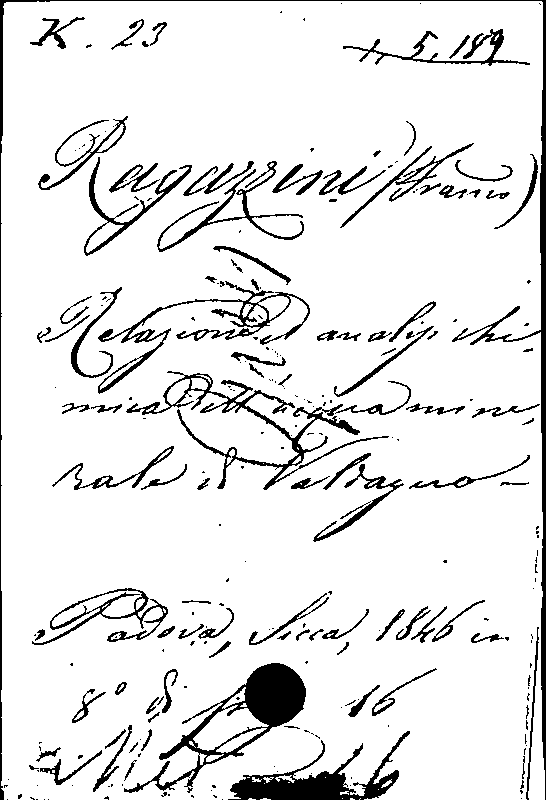 K. 23
1, 5, 189
Ragazzini (Franco)
Relazione ed analisi chi-
mica dell' acqua mine-
rale di Valdagno -
Padova, Sicca, 1846 in
8° di 16